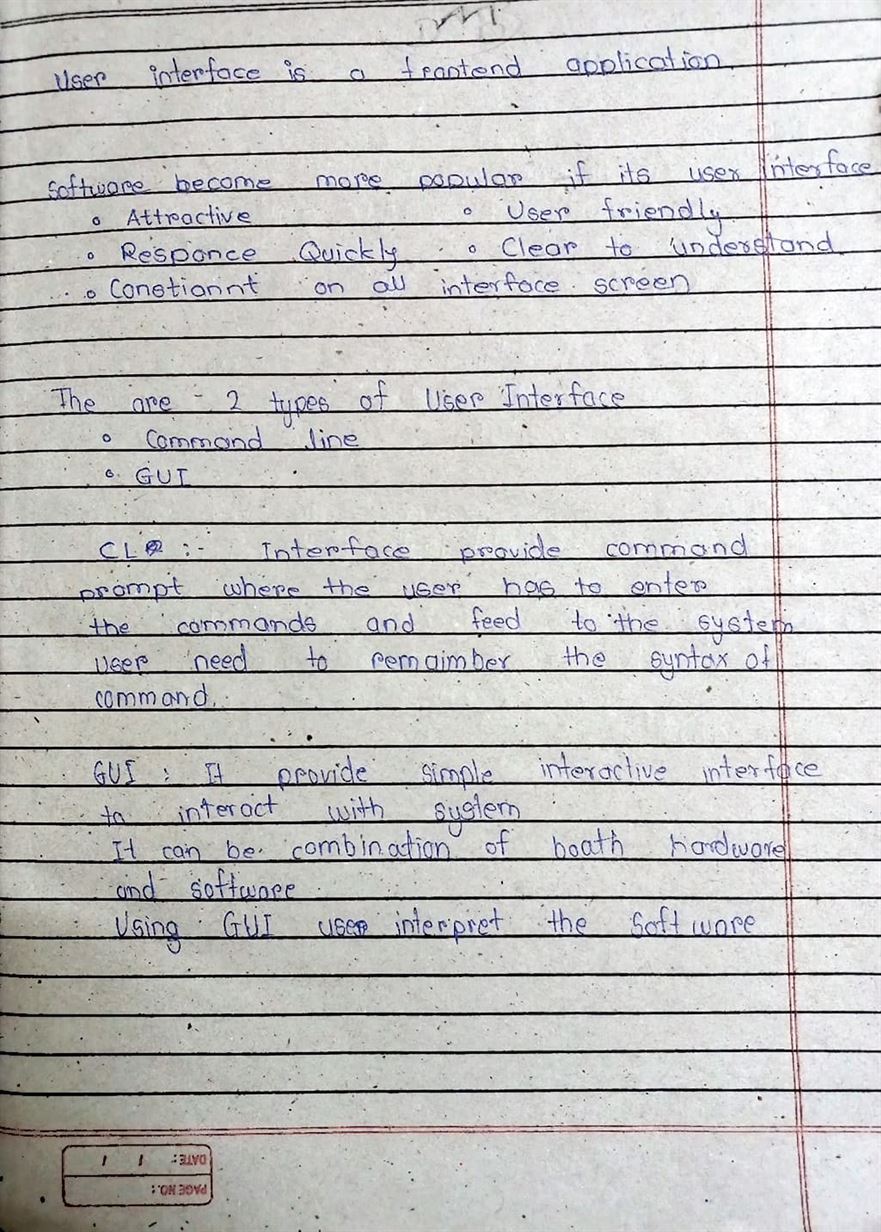 User interface is a frontend application.
Software become more popular if its user interface
◦ Attractive ◦ User friendly
◦ Responce Quickly ◦ Clear to understand
◦ Constiannt on all interface screen
The are - 2 types of User Interface
◦ Command line
◦ GUI
CL :- Interface provide command
prompt where the user has to enter
the commands and feed to the system
user need to remaimber the syntax of
command.
GUI : It provide simple interactive interface
to interact with system
It can be combination of boath hardware
and software
Using GUI user interpret the Software
DATE: / /
PAGE NO.: